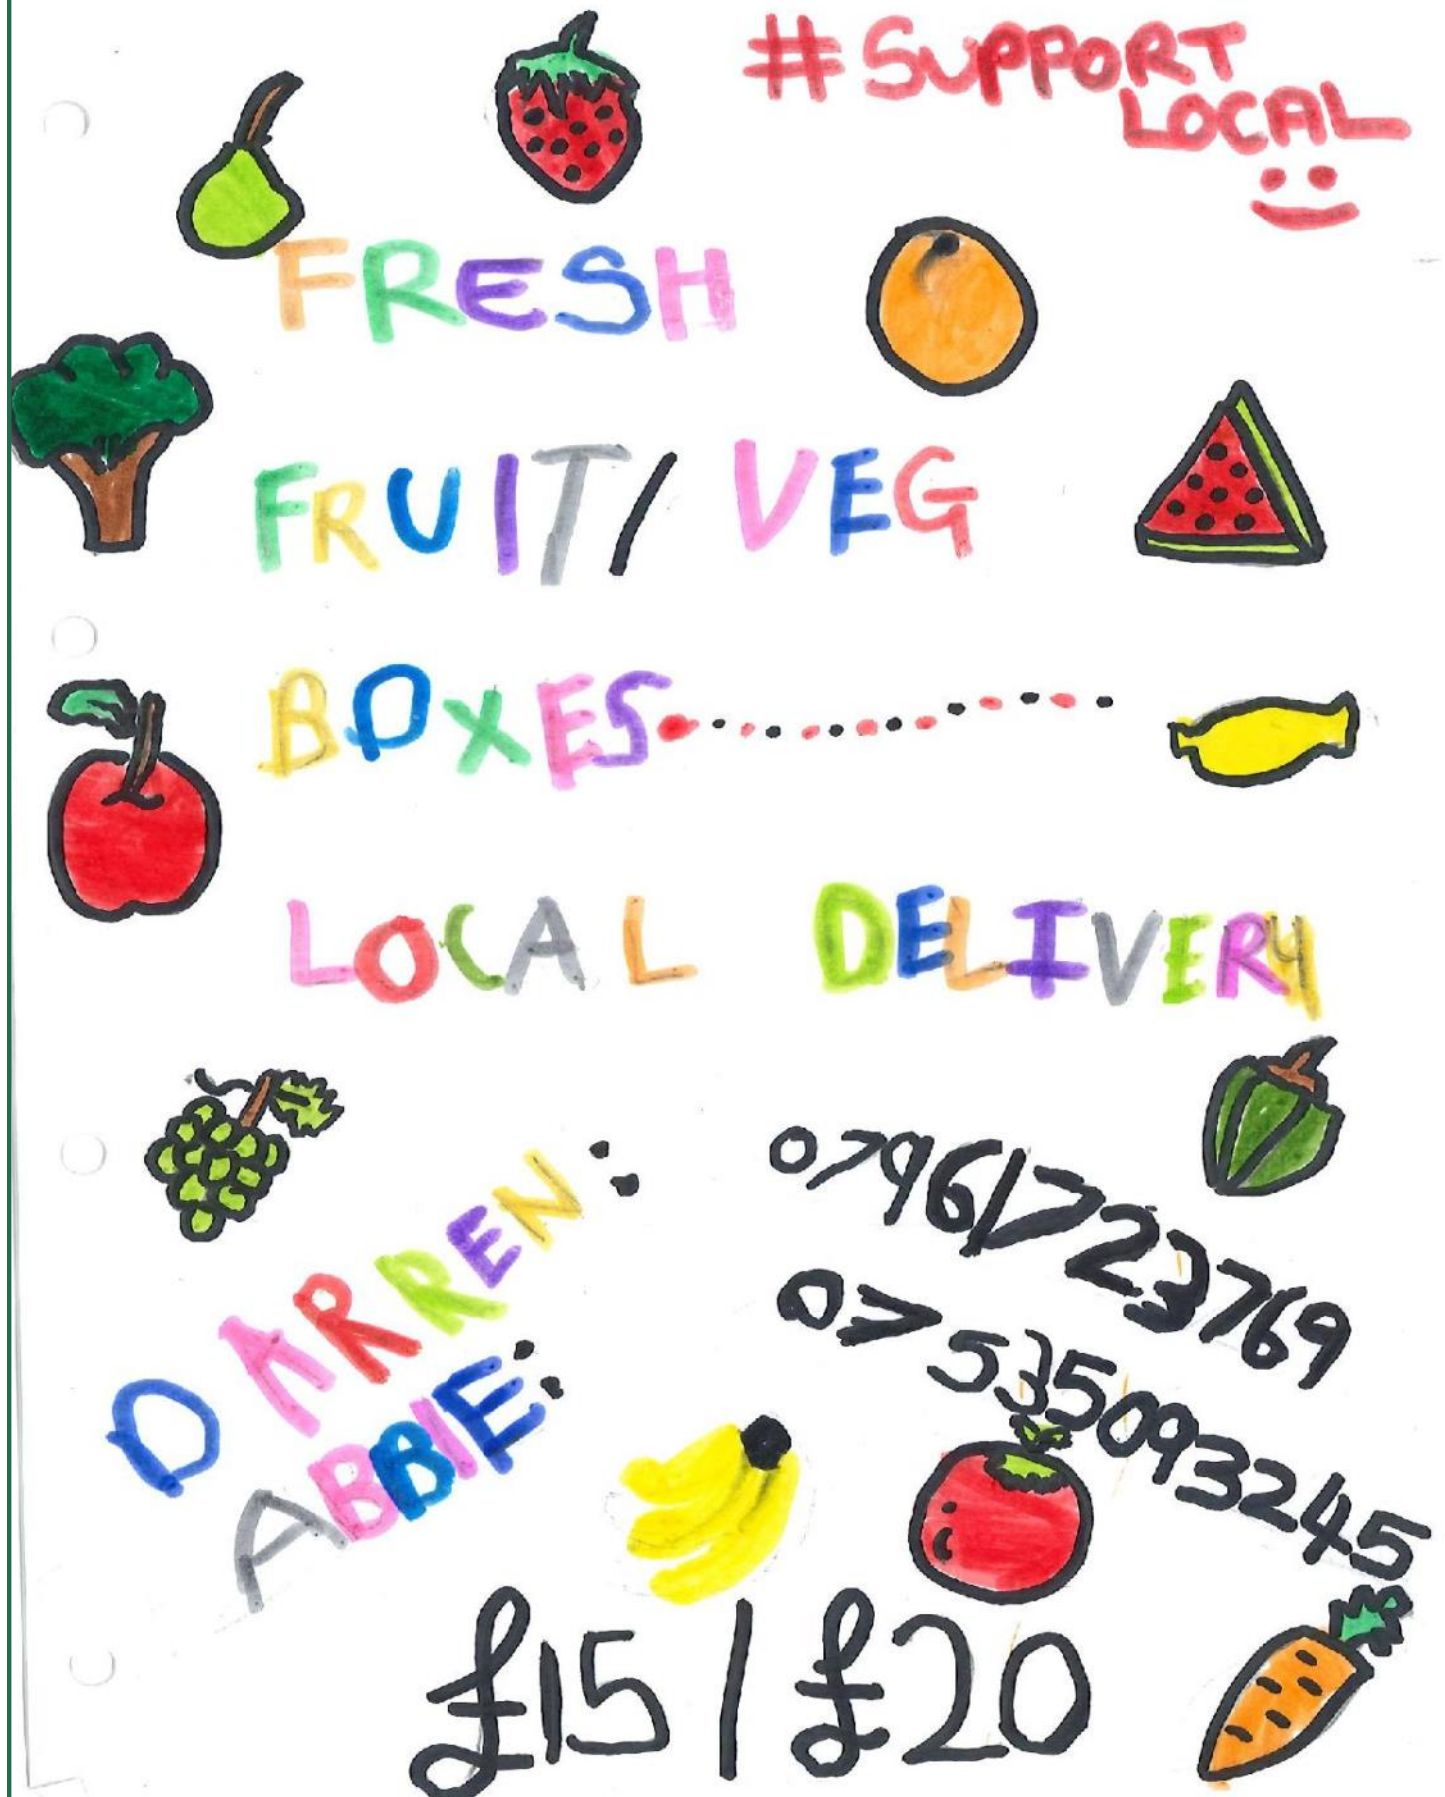 #SUPPORT
LOCAL
FRESH
FRUIT/ VEG
BOXES
LOCAL DELIVERY
DARREN: 07961723769
ABBIE: 07535093245
£15/£20